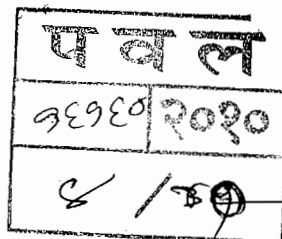 प व ल
१६१६० २०१०
४ /